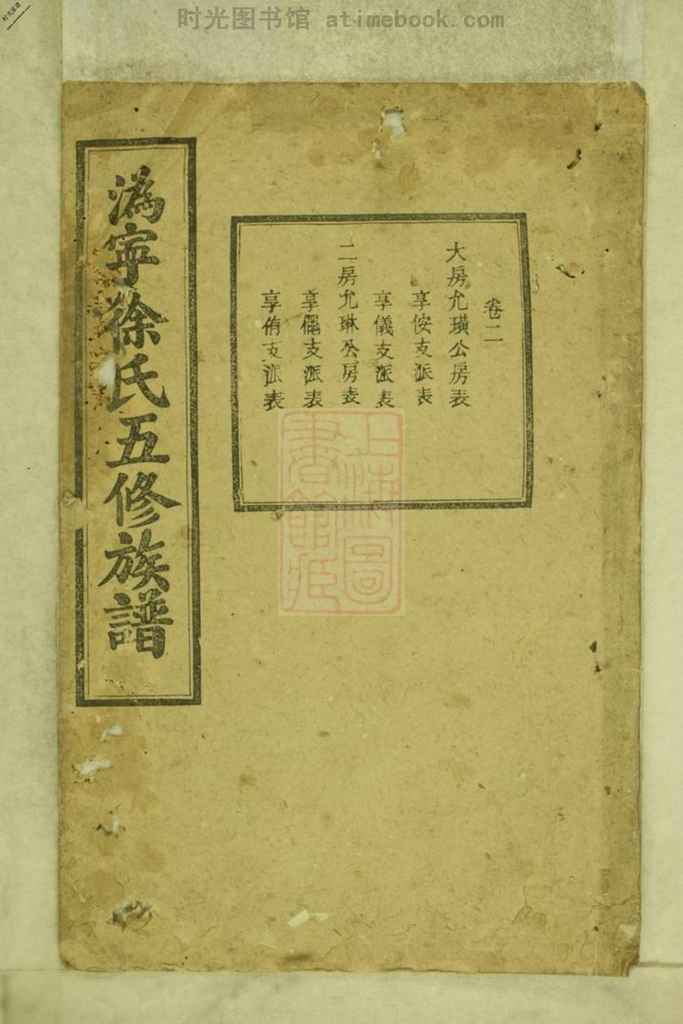 时光图书馆 atimebook.com
溈寧徐氏五修族譜
卷二
大房允璜公房表
享侒支派表
享儀支派表
二房允琳公房表
享儷支派表
享侑支派表
上海圖書館藏